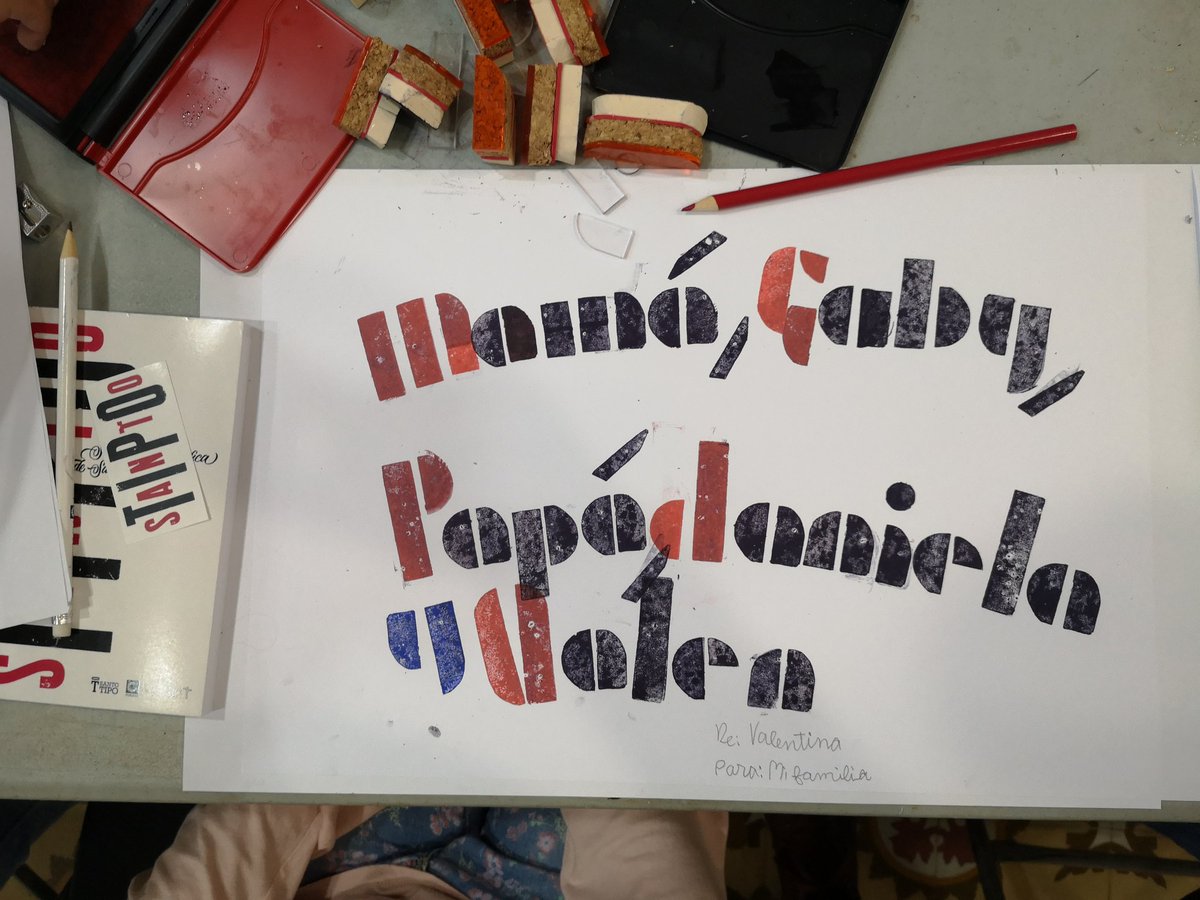 Mamá, Gaby,
Papá daniela
y Valen
De: Valentina
Para: Mi familia
STAMPTOO
SANTO
TIPO